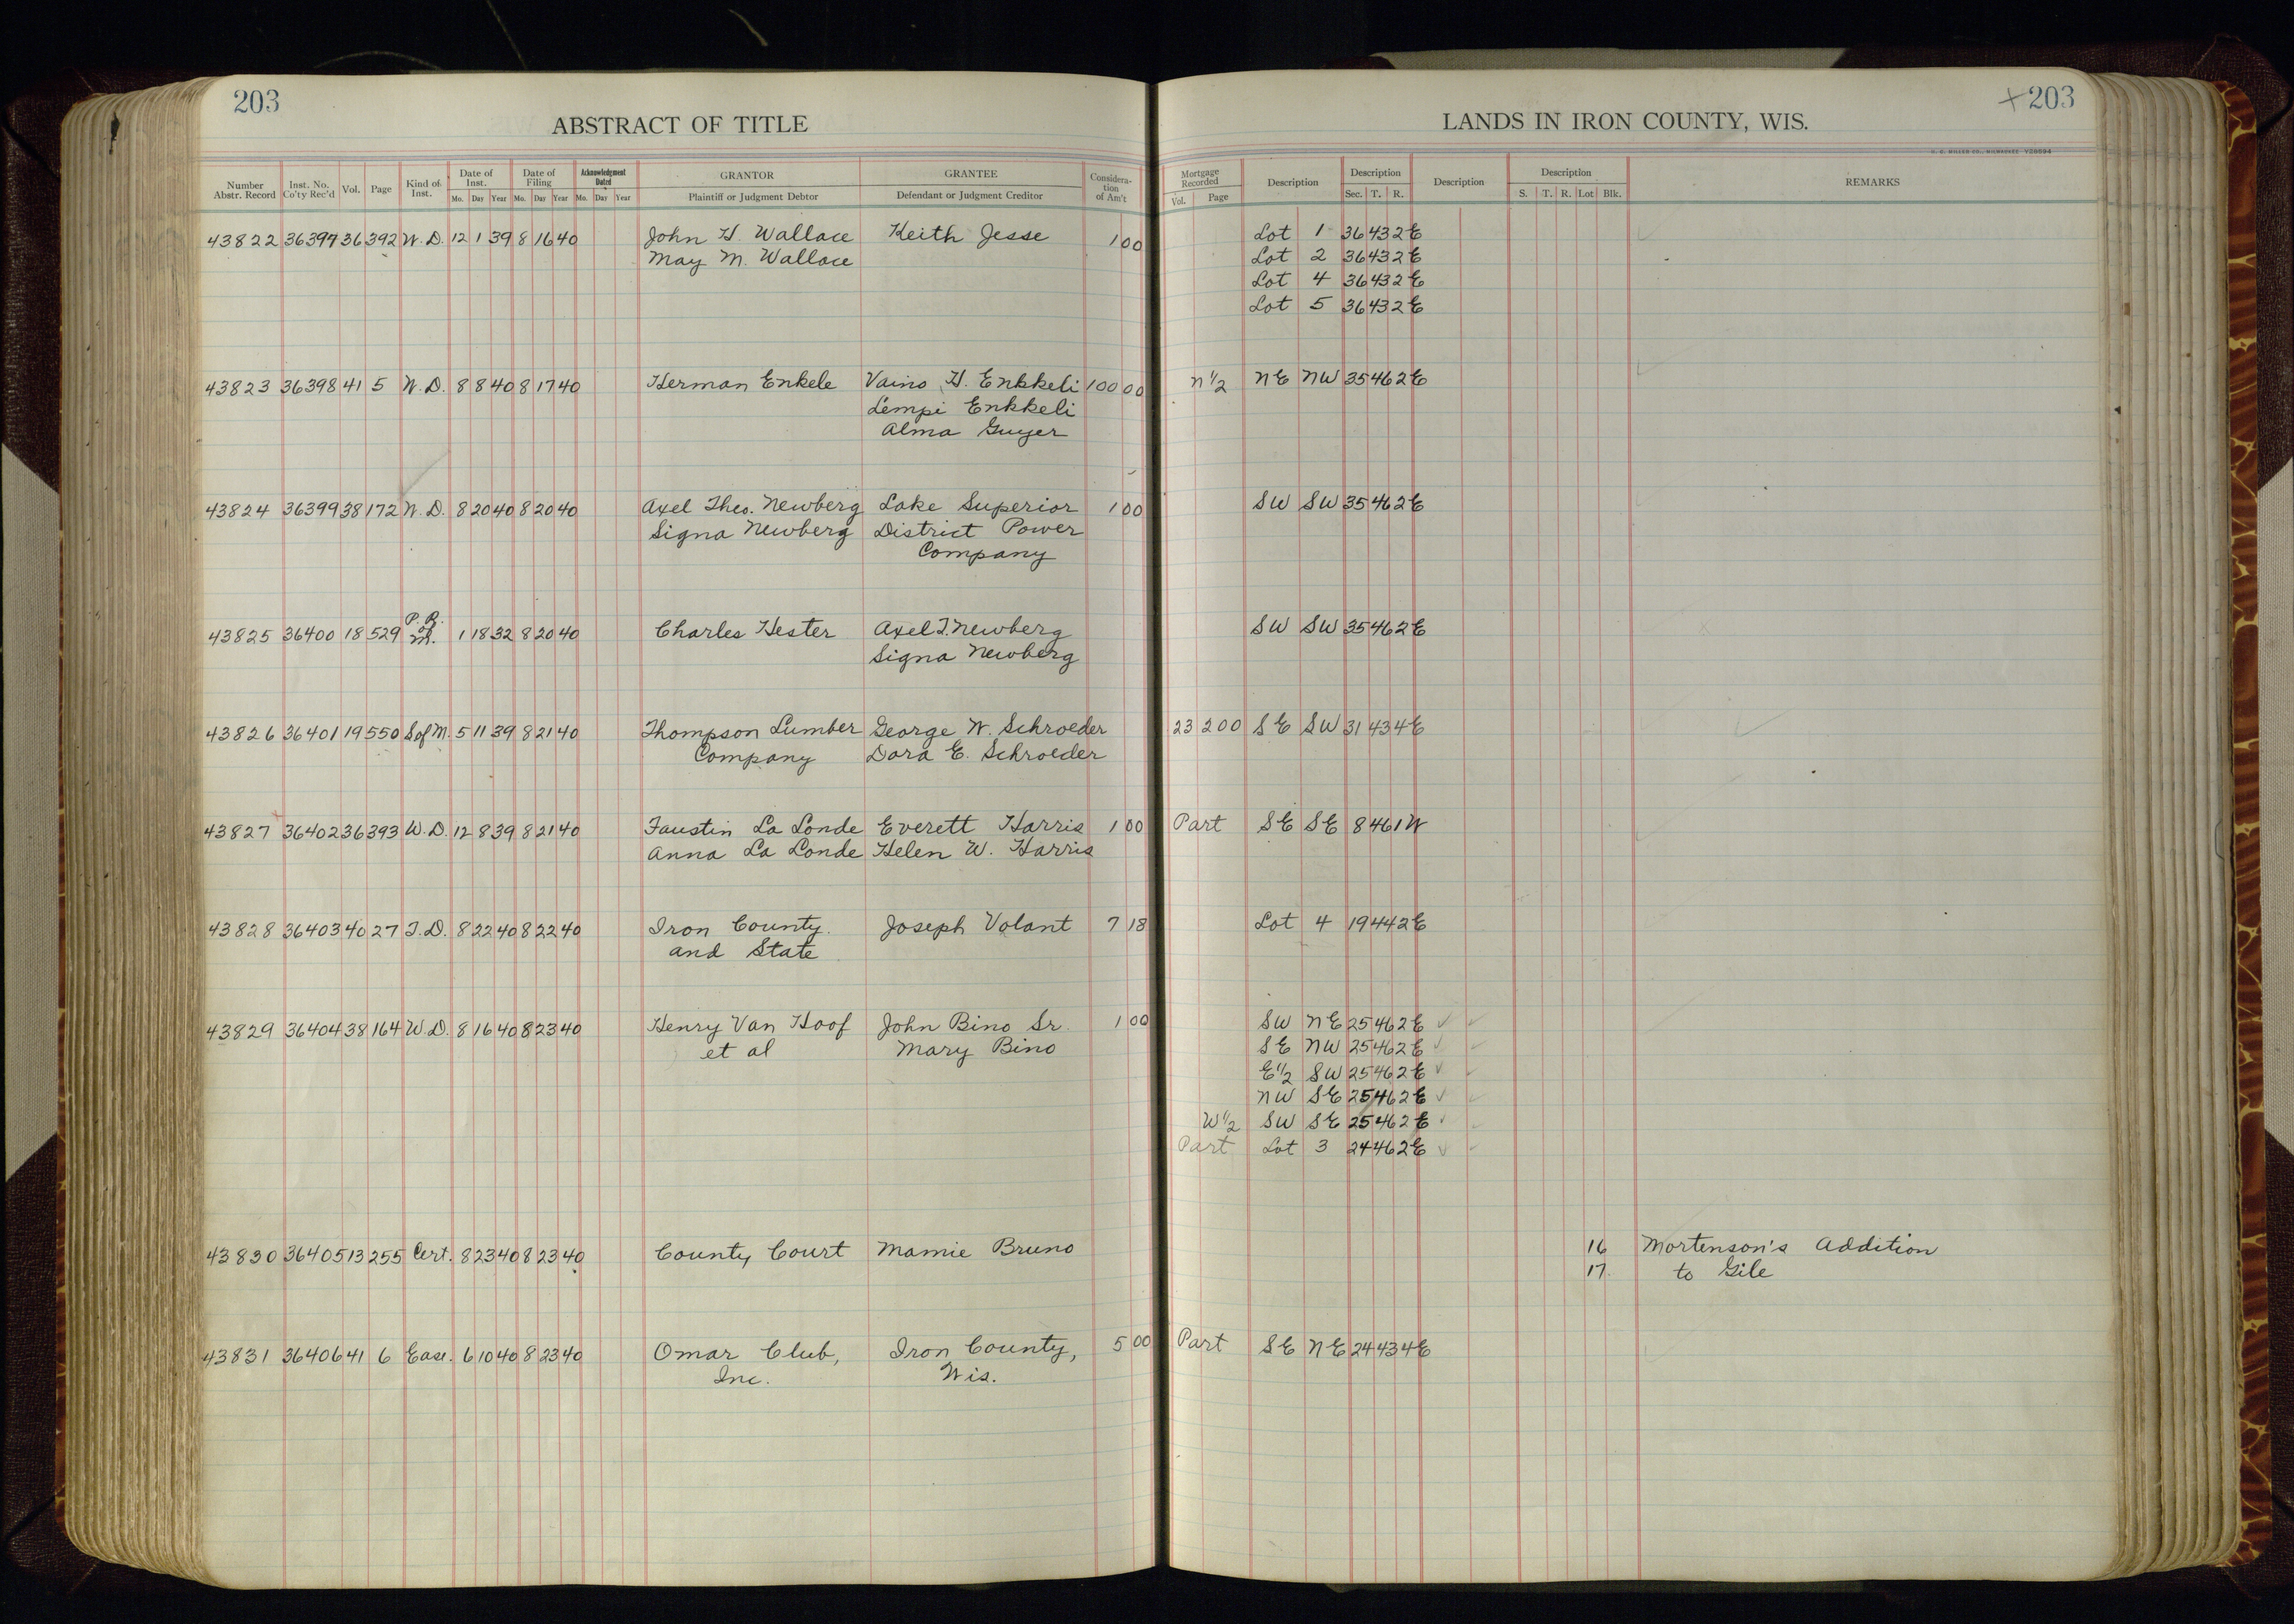 203
ABSTRACT OF TITLE
Number Abstr. Record Inst. No. Co'ty Rec'd Vol. Page Kind of Inst. Date of Inst. Mo. Day Year Date of Filing Mo. Day Year Acknowledgment Dated Mo. Day Year GRANTOR Plaintiff or Judgment Debtor GRANTEE Defendant or Judgment Creditor Consideration of Am't
43822 36397 36 392 W.D. 12 1 39 8 16 40 John H. Wallace Keith Jesse 1 00
May M. Wallace
43823 36398 41 5 W.D. 8 8 40 8 17 40 Herman Enkele Vaino H. Enkkeli 100 00
Lempi Enkkeli
Alma Guyer
43824 36399 38 172 W.D. 8 20 40 8 20 40 Axel Theo. Newberg Lake Superior 1 00
Signa Newberg District Power
Company
43825 36400 18 529 P.R. of M. 1 18 32 8 20 40 Charles Hester Axel T. Newberg
Signa Newberg
43826 36401 19 550 S of M. 5 11 39 8 21 40 Thompson Lumber George W. Schroeder
Company Dora E. Schroeder
43827 36402 36 393 W.D. 12 8 39 8 21 40 Faustin La Londe Everett Harris 1 00
Anna La Londe Helen W. Harris
43828 36403 40 27 T.D. 8 22 40 8 22 40 Iron County Joseph Volant 7 18
and State
43829 36404 38 164 W.D. 8 16 40 8 23 40 Henry Van Hoof John Bino Sr. 1 00
et al Mary Bino
43830 36405 13 255 Cert. 8 23 40 8 23 40 County Court Mamie Bruno
43831 36406 41 6 Ease. 6 10 40 8 23 40 Omar Club, Iron County, 5 00
Inc. Wis.
+203
LANDS IN IRON COUNTY, WIS.
Mortgage Recorded Vol. Page Description Description Sec. T. R. Description Description S. T. R. Lot Blk. REMARKS
Lot 1 36 43 2E
Lot 2 36 43 2E
Lot 4 36 43 2E
Lot 5 36 43 2E
N 1/2 NE NW 35 46 2E
SW SW 35 46 2E
SW SW 35 46 2E
23 200 SE SW 31 43 4E
Part SE SE 8 46 1W
Lot 4 19 44 2E
SW NE 25 46 2E
SE NW 25 46 2E
E 1/2 SW 25 46 2E
NW SE 25 46 2E
W 1/2 SW SE 25 46 2E
Part Lot 3 24 46 2E
16 Mortenson's Addition
17. to Gile
Part SE NE 24 43 4E